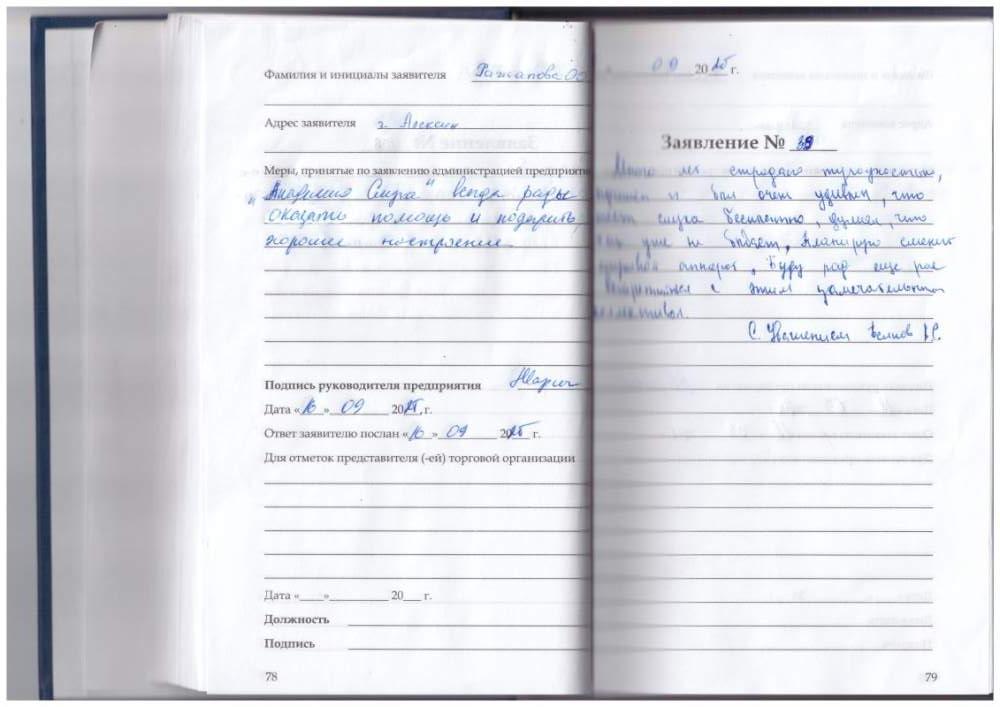 Фамилия и инициалы заявителя
Адрес заявителя г. Алексин
Меры, принятые по заявлению администрацией предприяти
"Академия Слуха" всегда рады
оказать помощь и подарить
хорошее настроение.
Подпись руководителя предприятия
Дата «16» 09 20 г.
Ответ заявителю послан «16» 09 20 г.
Для отметок представителя (-ей) торговой организации
Дата «___»__________ 20___ г.
Должность
Подпись
78
09 20 г.
Заявление № 39
Много лет страдаю тугоухостью,
и был очень удивлен, что
слуха бесплатно, думал, что
уже не бывает, Планирую сменить
аппарат, Буду рад еще раз
встретиться с этим замечательным
коллективом.
С Уважением
79